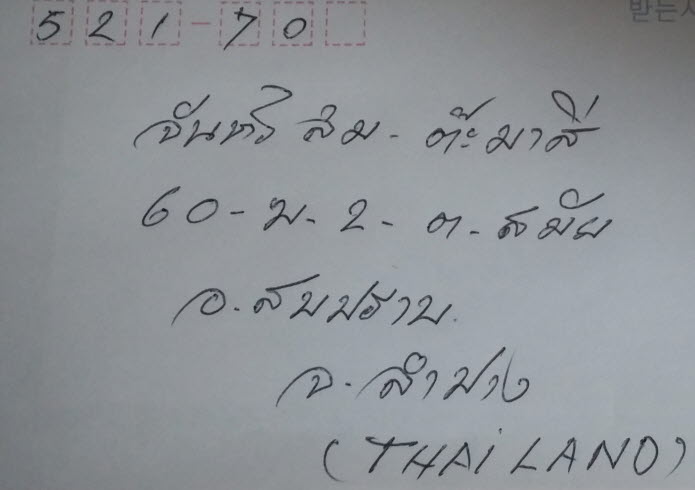 받는사
521-70
จันทร์สม - ต๊ะมาสี่
60 - ม. 2 - ต. สมัย
อ. สบปราบ.
จ. ลำปาง
(THAiLAND)